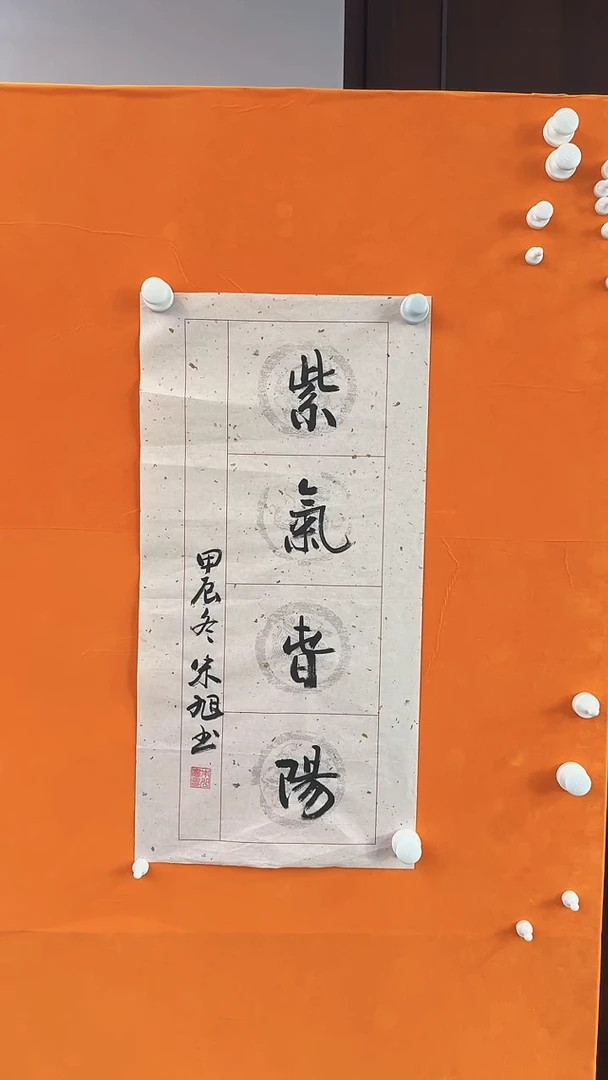 紫氣旾陽
甲辰冬 朱旭书